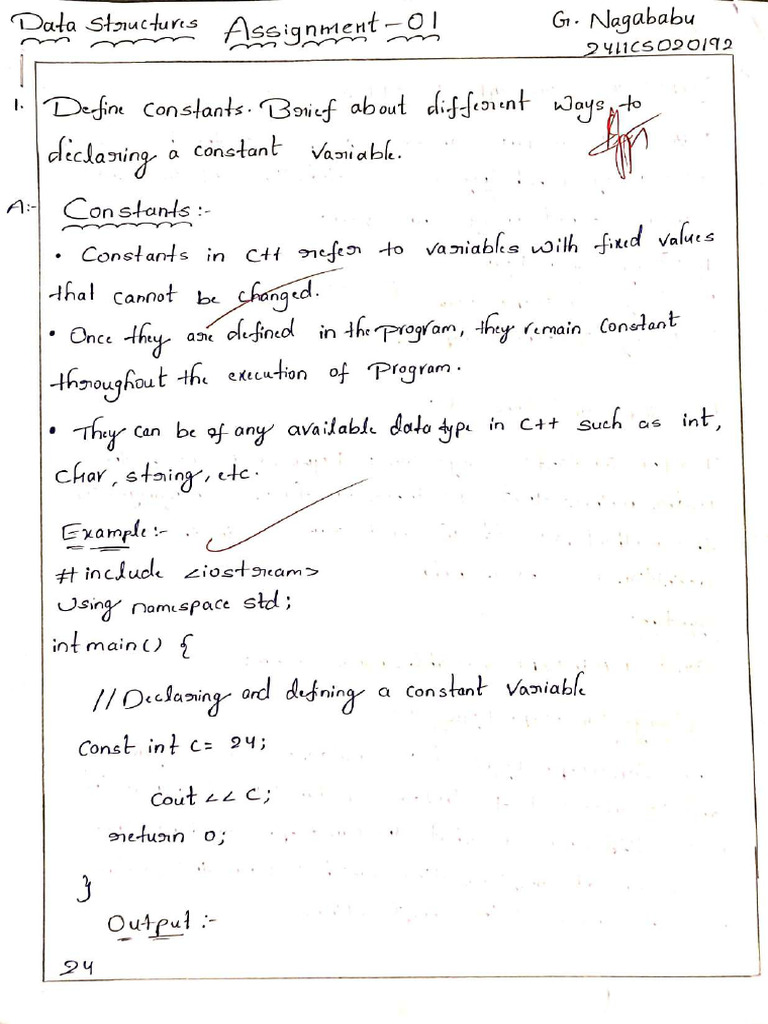 Data Structures Assignment-01 G. Nagababu
2411CS020192
1. Define constants. Brief about different ways to
declaring a constant variable.
A:- Constants:-
• Constants in C++ refer to variables with fixed values
that cannot be changed.
• Once they are defined in the program, they remain constant
throughout the execution of Program.
• They can be of any available data type in C++ such as int,
char, string, etc.
Example:-
#include <iostream>
Using namespace std;
int main() {
//Declaring and defining a constant variable
Const int c= 24;
Cout << c;
return 0;
}
Output:-
24